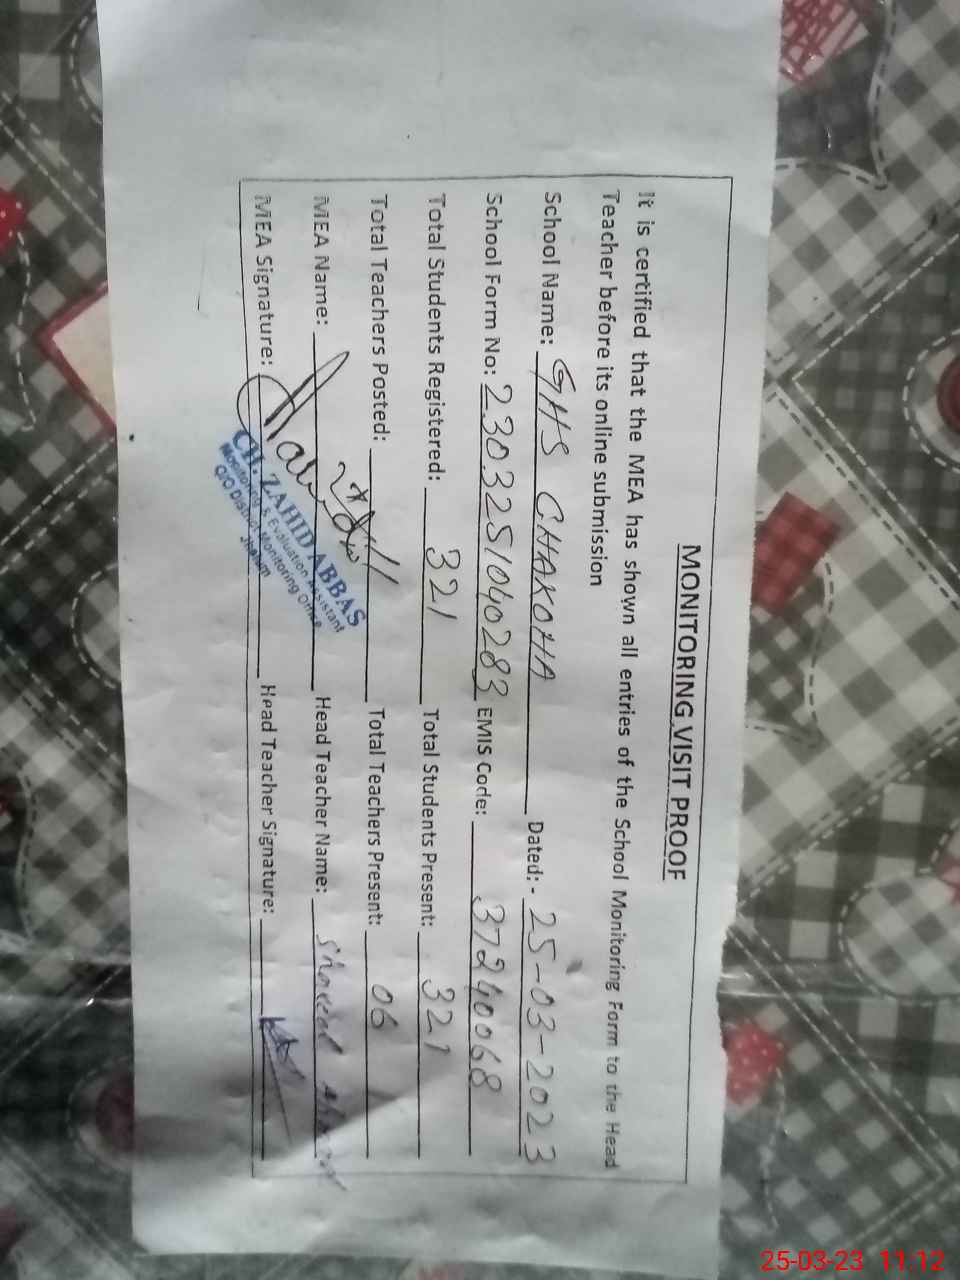 MONITORING VISIT PROOF
It is certified that the MEA has shown all entries of the School Monitoring Form to the Head
Teacher before its online submission
School Name: GHS CHAKOHA Dated: - 25-03-2023
School Form No: 2303251040283 EMIS Code: 37240068
Total Students Registered: 321 Total Students Present: 321
Total Teachers Posted: Total Teachers Present: 06
MEA Name: Head Teacher Name:
MEA Signature: Head Teacher Signature:
CH. ZAHID ABBAS
Monitoring & Evaluation Assistant
O/O District Monitoring Office
Jhelum
25-03-23 11:12